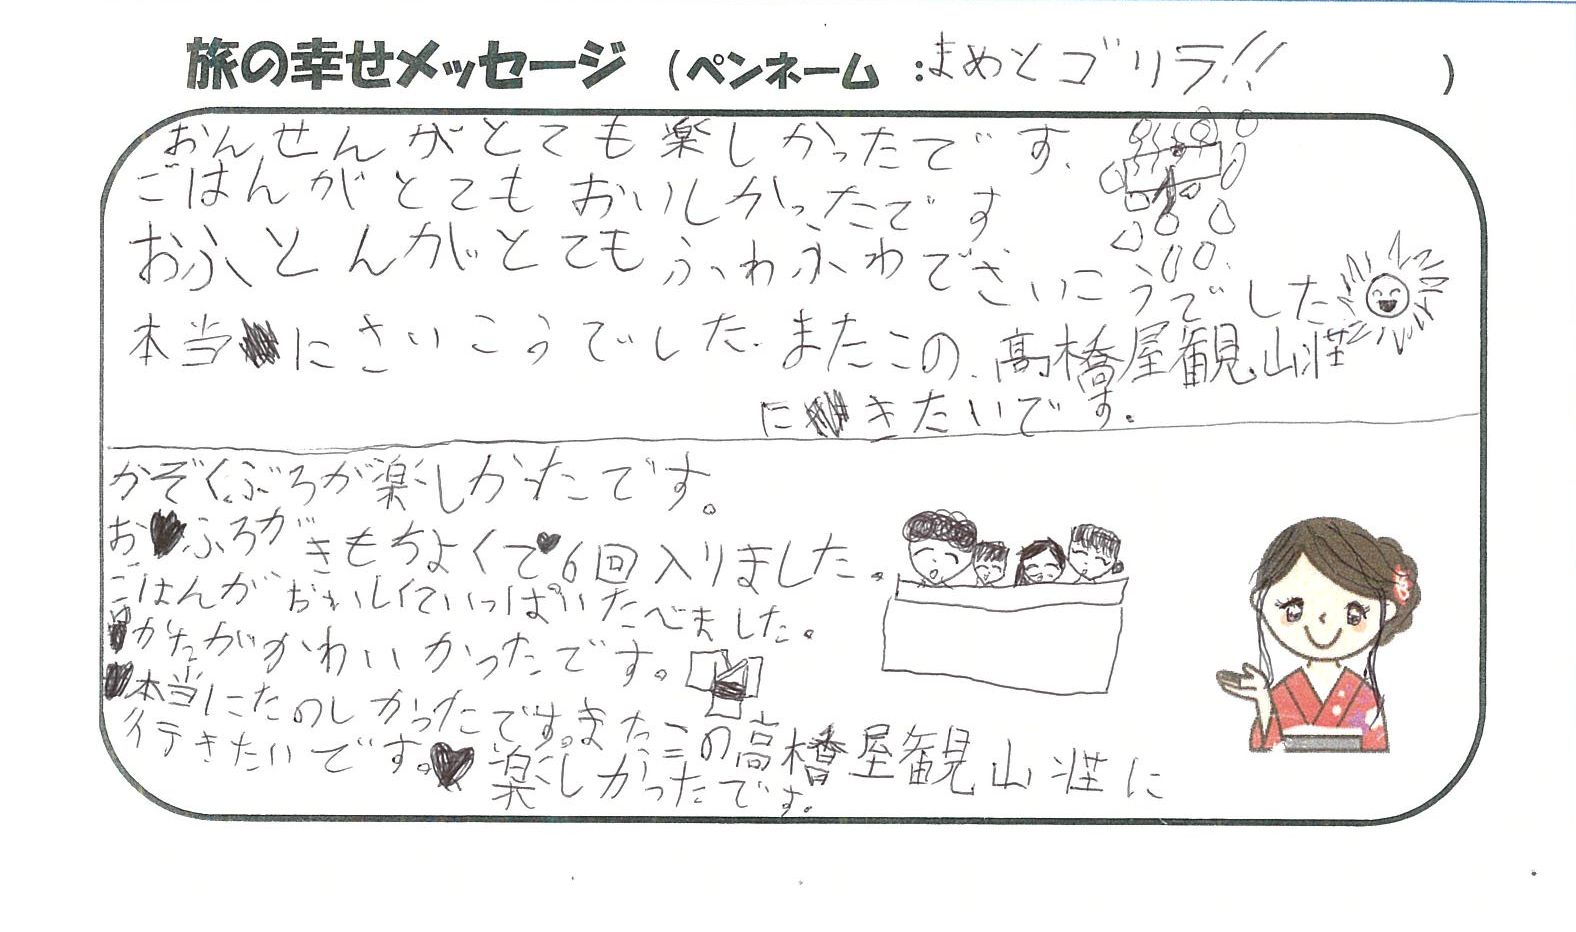 旅の幸せメッセージ （ペンネーム ：まめとゴリラ!! ）
おんせんがとても楽しかったです.
ごはんがとてもおいしかったです
おふとんがとてもふわふわでさいこうでした
本当にさいこうでした. またこの.高橋屋観山荘
にきたいです.
かぞくぶろが楽しかったです。
おふろがきもちよくて6回入りました。
ごはんがおいしくていっぱいたべました。
かたがかわいかったです。
本当にたのしかったです。またこの高橋屋観山荘に
行きたいです。
楽しかったです。